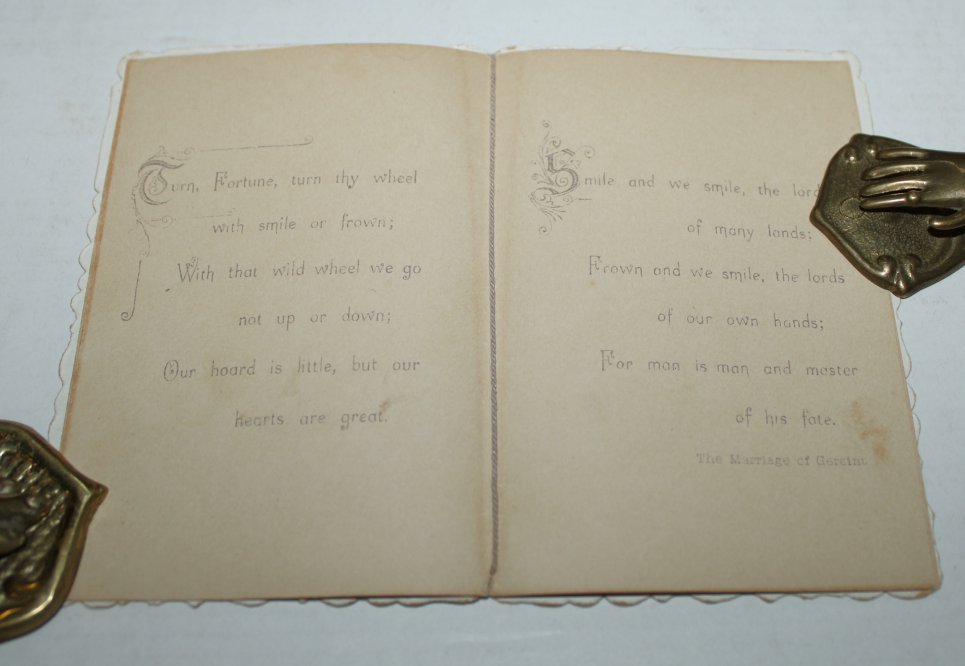 Turn, Fortune, turn thy wheel
with smile or frown;
With that wild wheel we go
not up or down;
Our hoard is little, but our
hearts are great.
Smile and we smile, the lord
of many lands;
Frown and we smile, the lords
of our own hands;
For man is man and master
of his fate.
The Marriage of Geraint